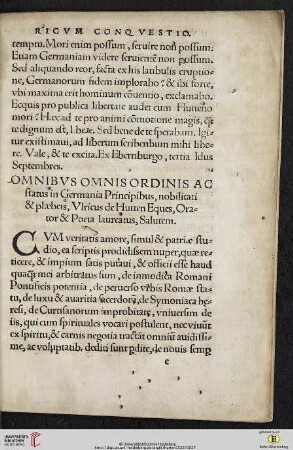 RICVM CONQVESTIO.
temptu. Mori enim possum, seruire non possum.
Etiam Germaniam videre seruientē non possum.
Sed aliquando reor, facta ex his latibulis eruptio
ne, Germanorum fidem implorabo: & ibi forte,
vbi maxima erit hominum cōuentio, exclamabo.
Ecquis pro publica libertate audet cum Hutteno
mori? Hæc ad te pro animi cōmotione magis, q̄
te dignum est, libere. Sed bene de te sperabam. Igi
tur existimaui, ad liberum scribendum mihi libe
re. Vale, & te excita. Ex Ebernburgo, tertia Idus
Septembres.
OMNIBVS OMNIS ORDINIS AC
status in Germania Principibus, nobilitati
& plebeis, Vlricus de Hutten Eques, Ora-
tor & Poeta laureatus, Salutem.
CVM veritatis amore, simul & patriæ stu-
dio, ea scriptis prodidissem nuper, quæ re-
ticere, & impium satis putaui, & officii esse haud
quaq̄ mei arbitratus sum, de inmodica Romani
Pontificis potentia, de peruerso vrbis Romæ statu,
de luxu & auaritia sacerdotū, de Symoniaca hę-
resi, de Curtisanorum improbitate, vniuersim de
iis, qui cum spirituales vocari postulent, nec viuūt
ex spiritu, & carnis negotia tractāt omniū auidissi-
me, ac voluptatib. dediti sunt
e
UNIVERSITÄTS-
BIBLIOTHEK
HEIDELBERG
© Universitätsbibliothek Heidelberg